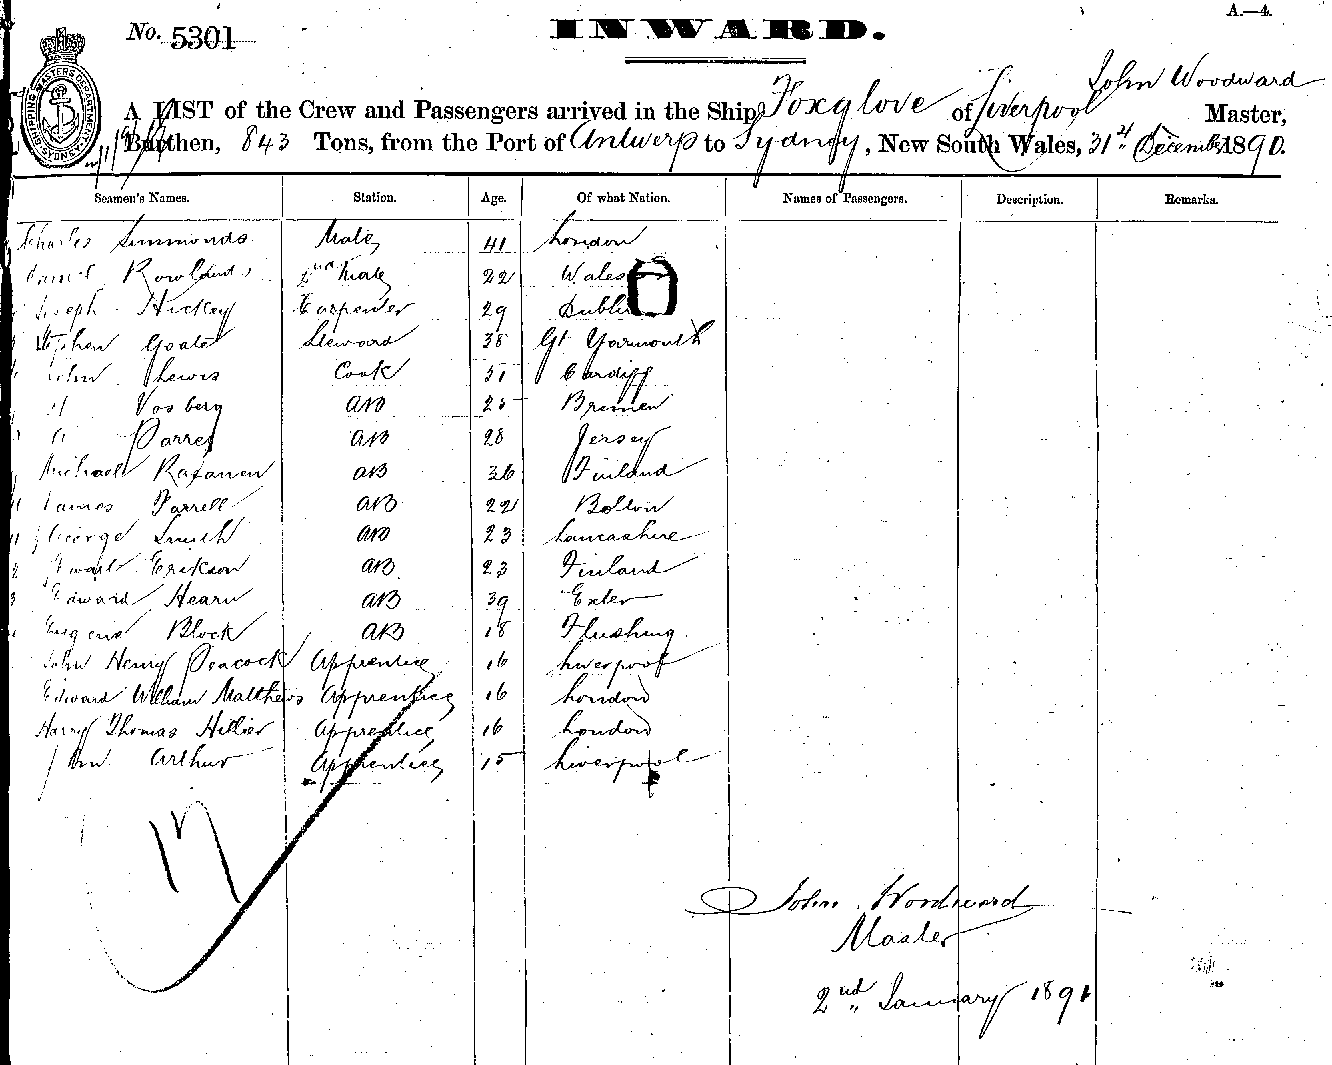 A.—4.
No. 5301
INWARD.
SHIPPING MASTERS DEPARTMENT SYDNEY
John Woodward
A LIST of the Crew and Passengers arrived in the Ship Foxglove of Liverpool Master,
Burthen, 843 Tons, from the Port of Antwerp to Sydney, New South Wales, 31st December 1890.
Seamen's Names. Station. Age. Of what Nation. Names of Passengers. Description. Remarks.
Charles Simmonds Mate 41 London
Daniel 2nd Mate 22 Wales
Joseph Hickey Carpenter 29 Dublin
Stephen Goate Steward 38 Gt Yarmouth
John Lewis Cook 51 Cardiff
Vosberg AB 25 Bremen
AB 28 Jersey
Michael AB 36 Finland
James Farrell AB 22 Bolton
George Smith AB 23 Lancashire
Erikson AB 23 Finland
Edward Hearn AB 39 Exter
Block AB 18 Flushing
John Henry Peacock Apprentice 16 Liverpool
Edward William Matthews Apprentice 16 London
Harry Thomas Hillier Apprentice 16 London
Arthur Apprentice 15 Liverpool
17
John Woodward
Master
2nd January 1891